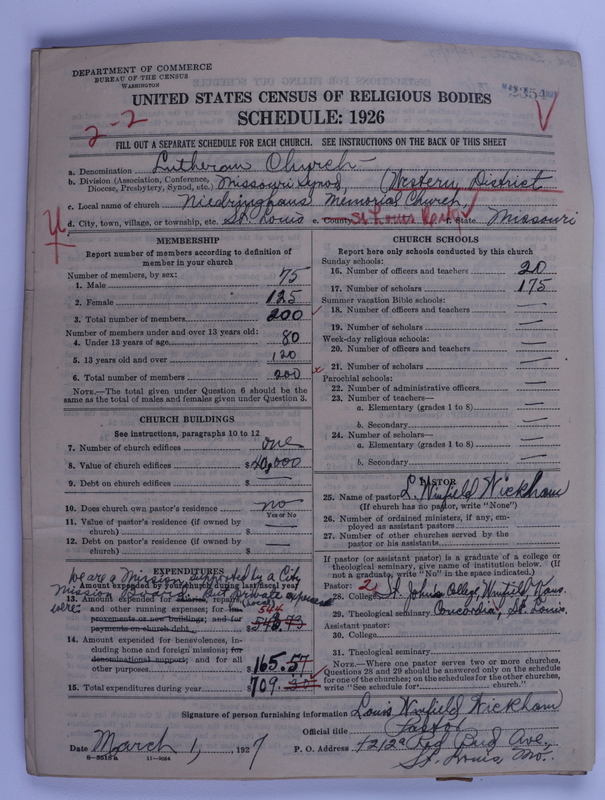 DEPARTMENT OF COMMERCE
BUREAU OF THE CENSUS
WASHINGTON
2354
UNITED STATES CENSUS OF RELIGIOUS BODIES
SCHEDULE: 1926
2-2
FILL OUT A SEPARATE SCHEDULE FOR EACH CHURCH. SEE INSTRUCTIONS ON THE BACK OF THIS SHEET
a. Denomination Lutheran Church
b. Division (Association, Conference, Diocese, Presbytery, Synod, etc.) Missouri Synod, Western District
c. Local name of church Niedringhaus Memorial Church,
d. City, town, village, or township, etc. St. Louis e. County St Louis f. State Missouri
MEMBERSHIP
Report number of members according to definition of
member in your church
Number of members, by sex:
1. Male 75
2. Female 125
3. Total number of members 200
Number of members under and over 13 years old:
4. Under 13 years of age 80
5. 13 years old and over 120
6. Total number of members 200
NOTE.—The total given under Question 6 should be the
same as the total of males and females given under Question 3.
CHURCH BUILDINGS
See instructions, paragraphs 10 to 12
7. Number of church edifices one
8. Value of church edifices $20,000
9. Debt on church edifices $ —
10. Does church own pastor's residence? no
Yes or No
11. Value of pastor's residence (if owned by
church) $ —
12. Debt on pastor's residence (if owned by
church) $ —
EXPENDITURES
Amount expended by your church during last fiscal year
We are a Mission, supported by a City
Mission Board. But private expenses
were:
13. Amount expended for repairs,
and other running expenses; for im-
provements or new buildings; and for
payments on church debt $
544
14. Amount expended for benevolences, in-
cluding home and foreign missions; for
denominational support; and for all
other purposes $165.57
15. Total expenditures during year $709.
CHURCH SCHOOLS
Report here only schools conducted by this church
Sunday schools:
16. Number of officers and teachers 20
17. Number of scholars 175
Summer vacation Bible schools:
18. Number of officers and teachers —
19. Number of scholars —
Week-day religious schools:
20. Number of officers and teachers —
21. Number of scholars —
Parochial schools:
22. Number of administrative officers —
23. Number of teachers—
a. Elementary (grades 1 to 8) —
b. Secondary —
24. Number of scholars—
a. Elementary (grades 1 to 8) —
b. Secondary —
PASTOR
25. Name of pastor L. Winfield Wickham
(If church has no pastor, write "None")
26. Number of ordained ministers, if any, em-
ployed as assistant pastors
27. Number of other churches served by the
pastor or his assistants
If pastor (or assistant pastor) is a graduate of a college or
theological seminary, give name of institution below. (If
not a graduate, write "No" in the space indicated.)
Pastor: 2
28. College St. John's College, Winfield, Kans.
29. Theological seminary Concordia, St. Louis.
Assistant pastor:
30. College
31. Theological seminary
NOTE.—Where one pastor serves two or more churches,
Questions 28 and 29 should be answered only on the schedule
for one of the churches; on the schedules for the other churches,
write "See schedule for church."
Signature of person furnishing information Louis Winfield Wickham
Official title Pastor
Date March 1, 1927 P. O. Address 4212a Red Bud Ave.,
St. Louis, Mo.
8—3518 a 11—9064